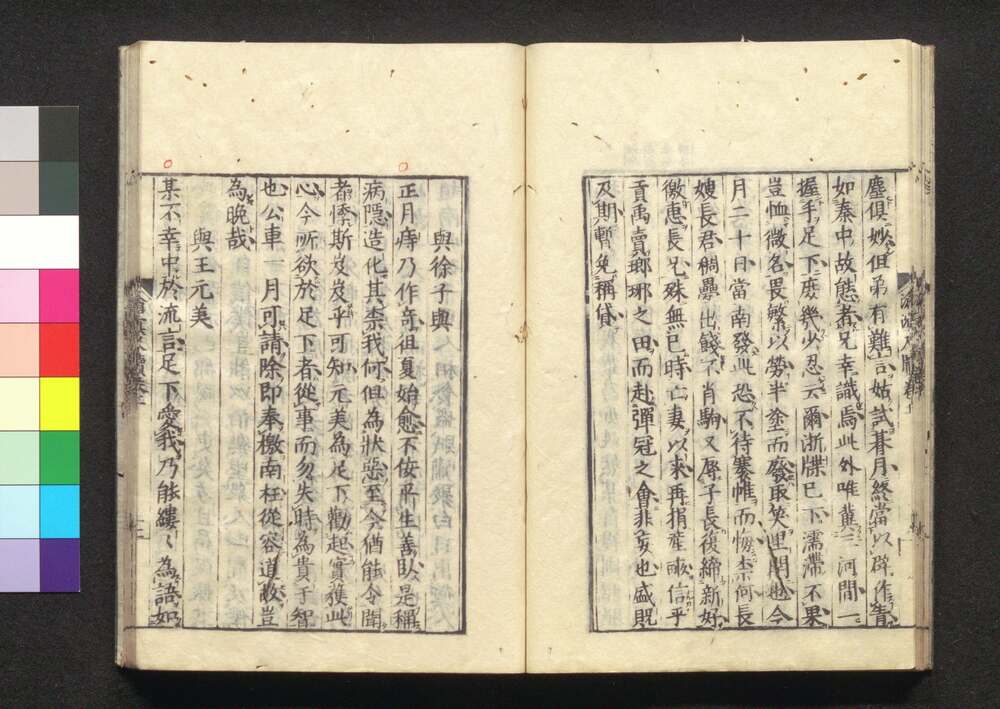 塵俱妙但弟有難言姑試暮月終當以辟作青
如秦中故態者兄幸識焉此外唯冀三河間一
握手足下庶幾少忍云爾浙牒已下濡滯不果
豈恤微名畏繁以勞半塗而廢取笑里閈也今
月二十日當南發此恐不待褰帷而悔柰何長
嫂長君稠疊出餞不肖駒又辱子長復締新好
徼惠長兄殊無已時亡妻以來再捐產畝信乎
貢禹賣瑯琊之田而赴彈冠之會非妄也盛貺
及期暫免稱貸
與徐子與
正月痔乃作奇徂夏始愈不佞平生善臥是稱
病隱造化其柰我何但為狀惡至今猶能令聞
者悸斯岌岌乎可知元美為足下勸起實獲此
心今所欲於足下者從事而勿失時為貴于智
也公車一月可請除即奉檄南枉從容道故豈
為晚哉
與王元美
某不幸中於流言足下愛我乃能縷〻為語如